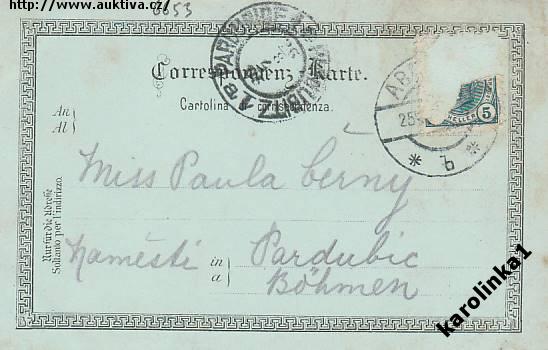 http://www.auktiva.cz/
6653
Correspondenz-Karte.
Cartolina di corrispondenza.
An
Al
5
HELLER
25
* b *
Miss Paula Černy
Náměsti in Pardubic
a
Böhmen
Nur für die Adresse
Soltanto per l'indirizzo.
karolinka1